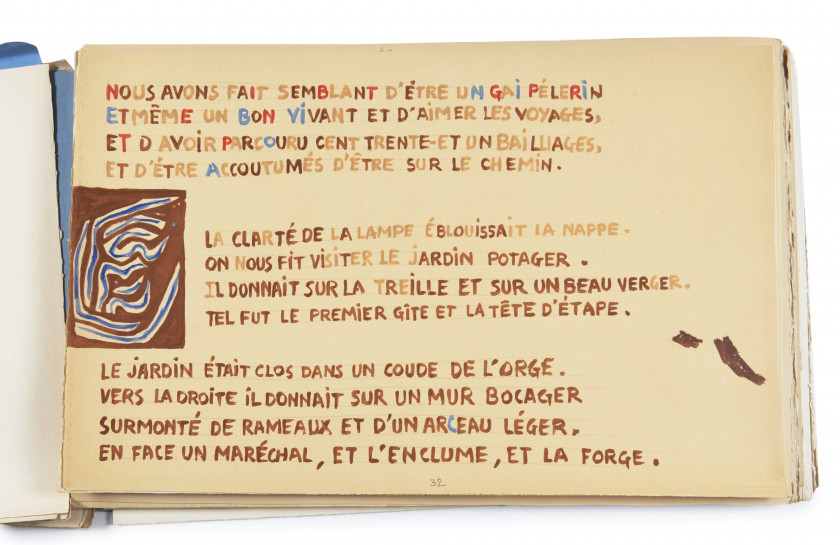 NOUS AVONS FAIT SEMBLANT D'ÊTRE UN GAI PÉLERIN
ET MÊME UN BON VIVANT ET D'AIMER LES VOYAGES,
ET D AVOIR PARCOURU CENT TRENTE-ET UN BAILLIAGES,
ET D'ÊTRE ACCOUTUMÉS D'ÊTRE SUR LE CHEMIN.
LA CLARTÉ DE LA LAMPE ÉBLOUISSAIT LA NAPPE.
ON NOUS FIT VISITER LE JARDIN POTAGER.
IL DONNAIT SUR LA TREILLE ET SUR UN BEAU VERGER.
TEL FUT LE PREMIER GÎTE ET LA TÊTE D'ÉTAPE.
LE JARDIN ÉTAIT CLOS DANS UN COUDE DE L'ORGE.
VERS LA DROITE IL DONNAIT SUR UN MUR BOCAGER
SURMONTÉ DE RAMEAUX ET D'UN ARCEAU LÉGER.
EN FACE UN MARÉCHAL, ET L'ENCLUME, ET LA FORGE.
32